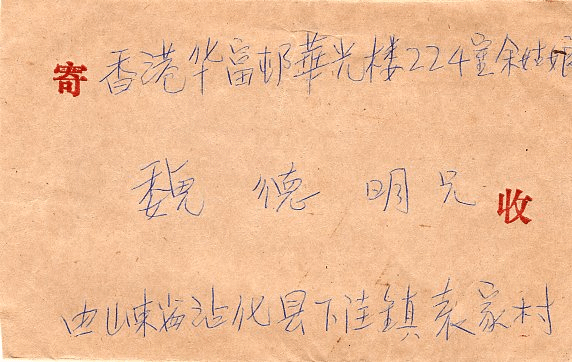 寄 香港华富邨華光楼224室余姑娘
魏德明兄 收
由山東省沾化县下洼镇袁家村